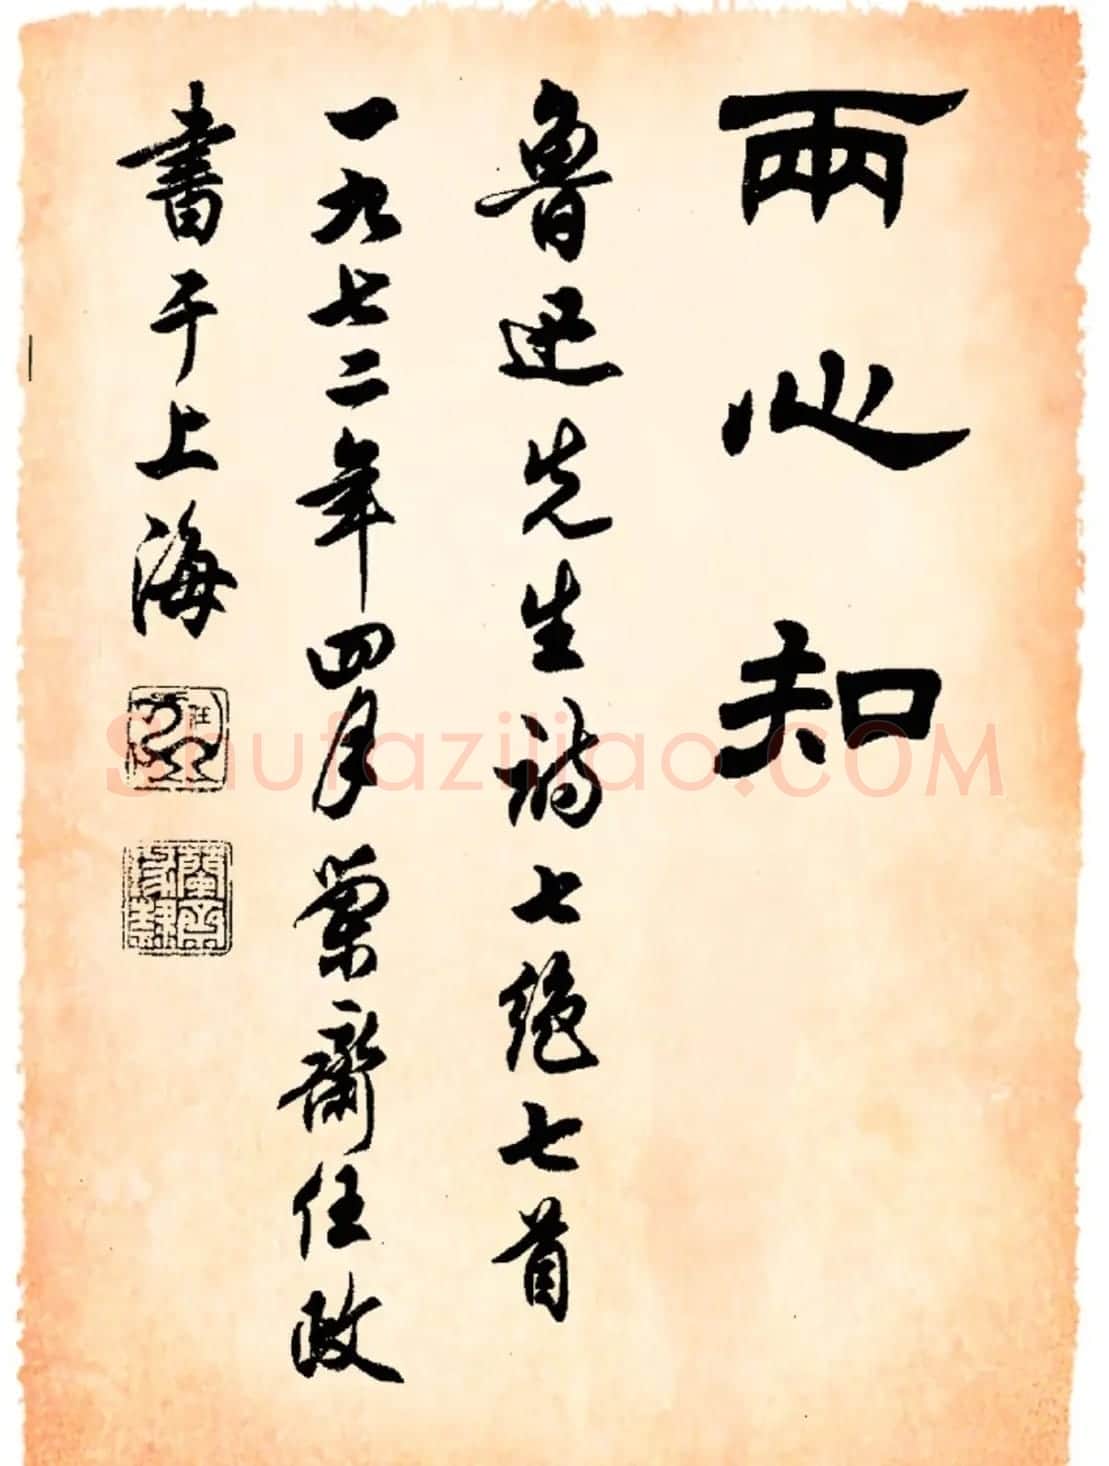 兩心知
魯迅先生詩七絶七首
一九七二年四月蘭齋任政
書于上海
Shufaziliao.COM